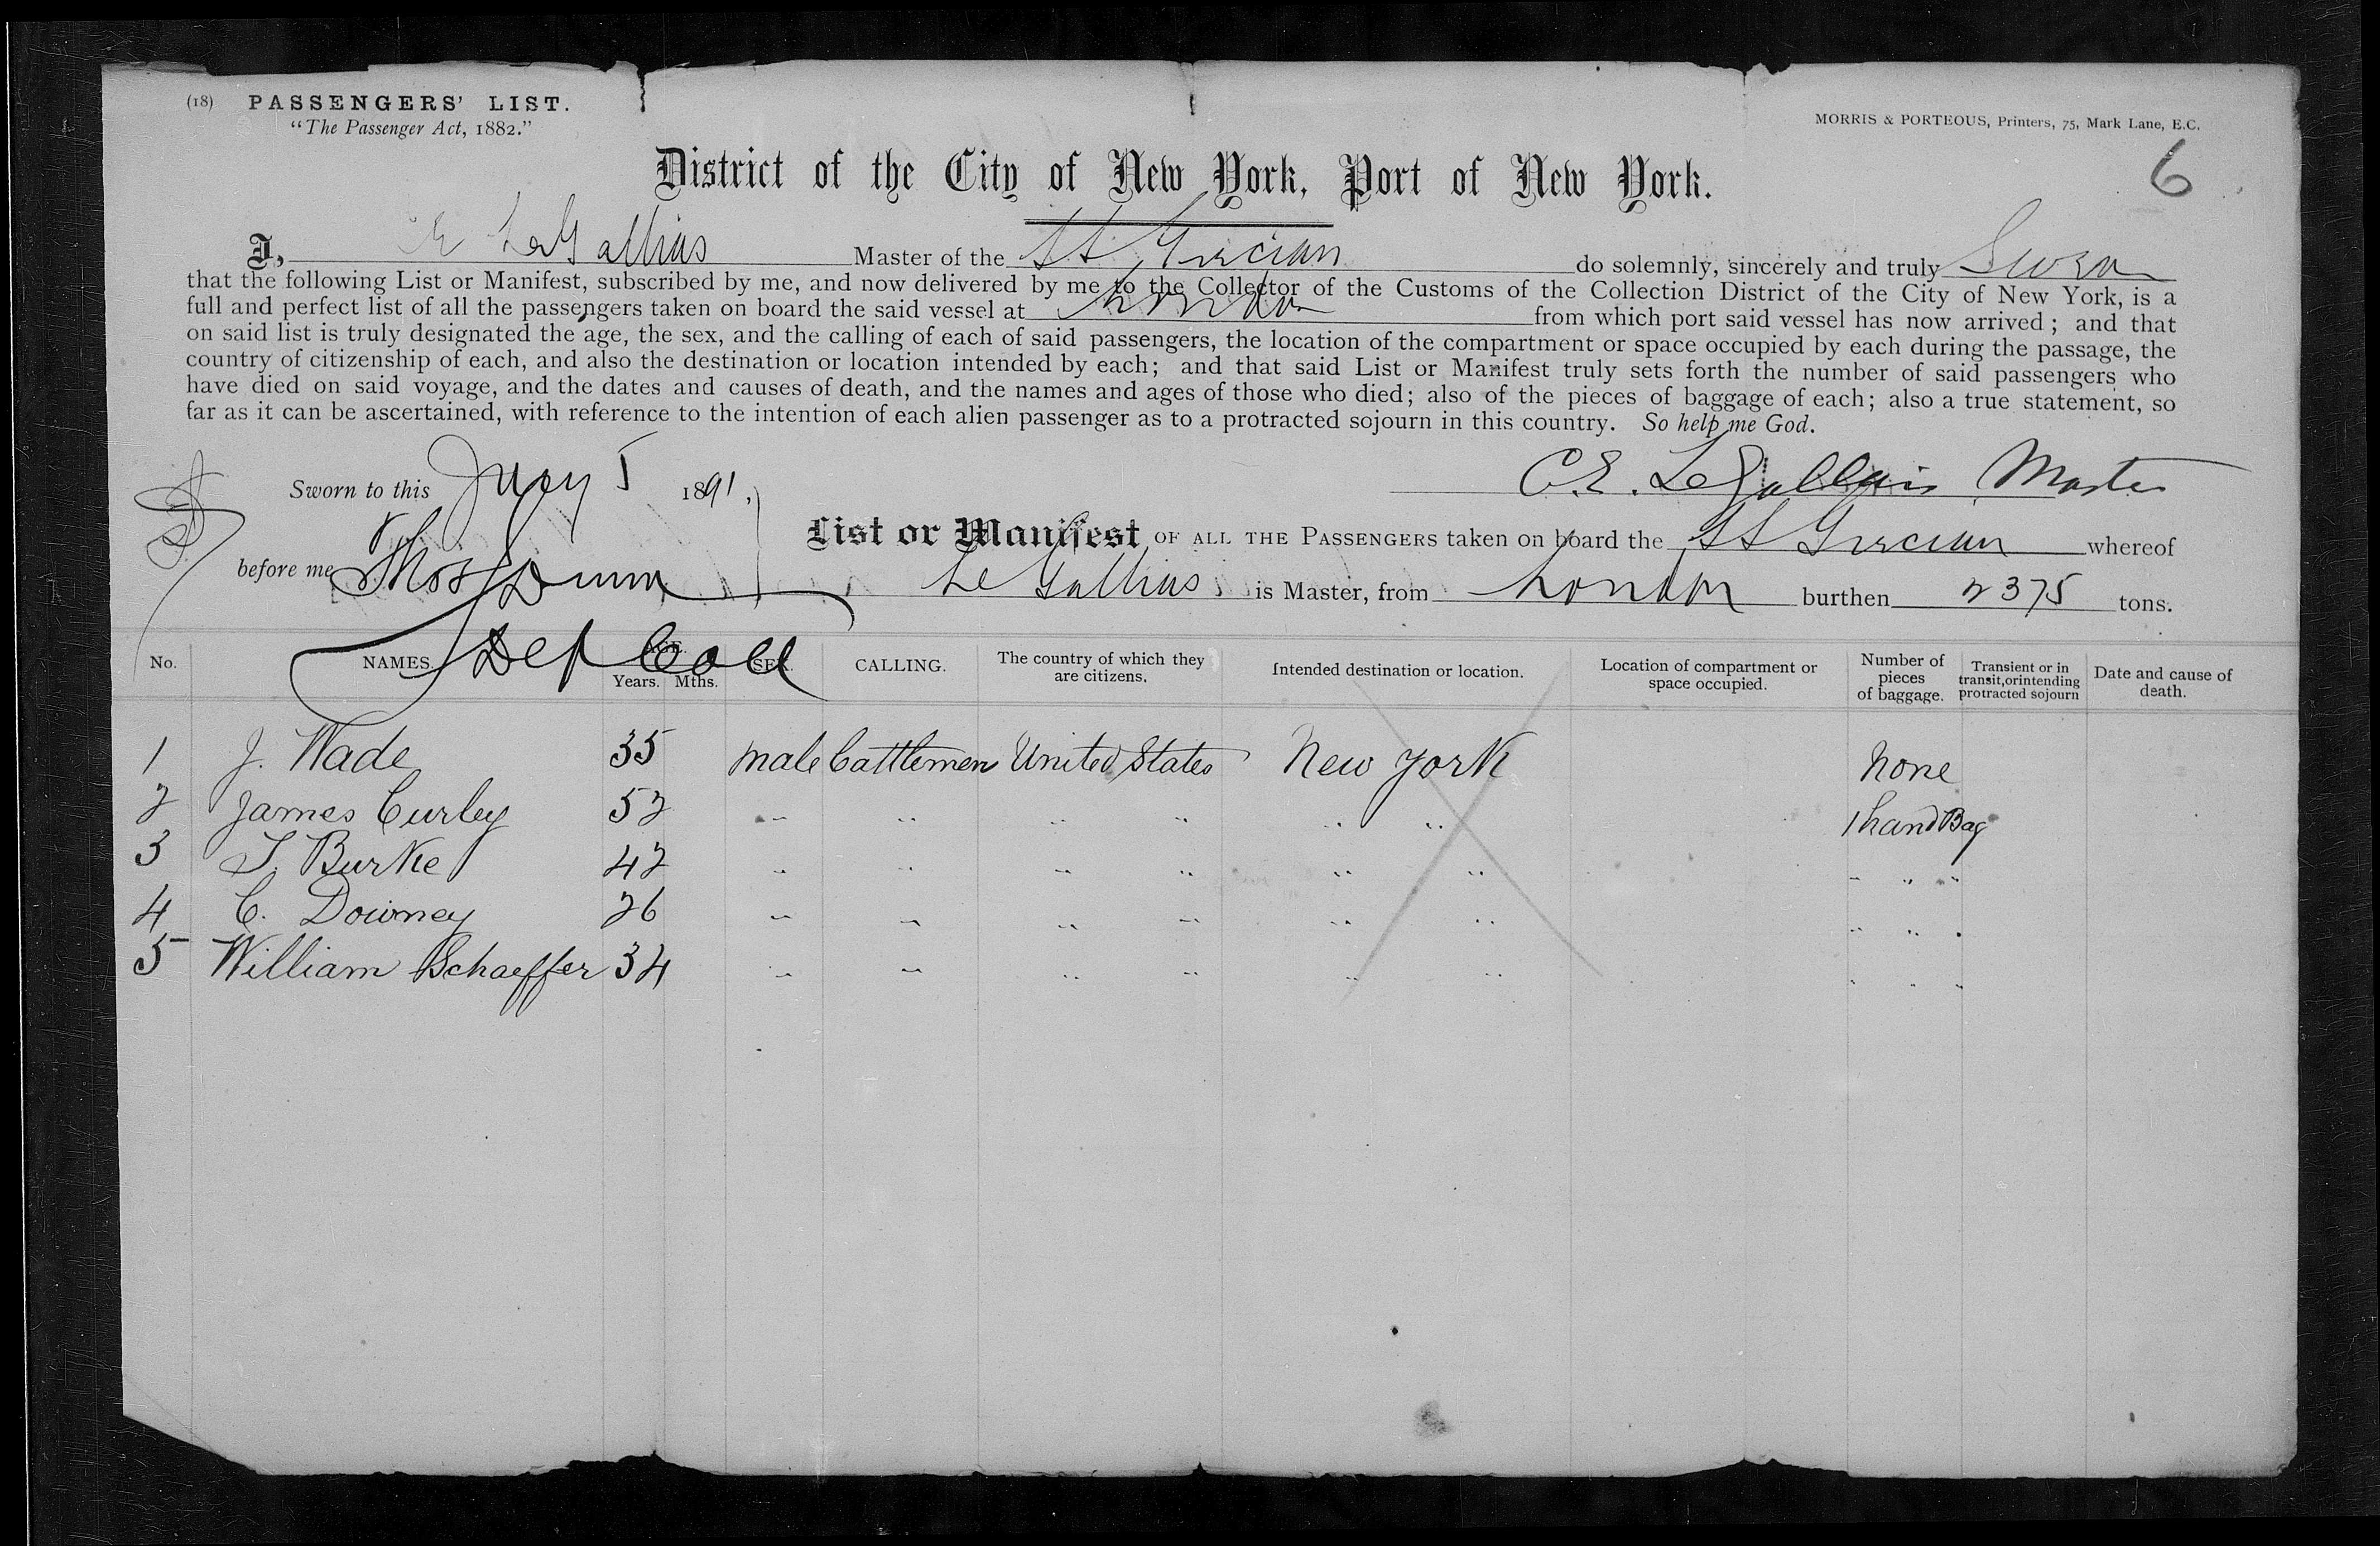 (18) PASSENGERS' LIST.
"The Passenger Act, 1882."
MORRIS & PORTEOUS, Printers, 75, Mark Lane, E.C.
6
District of the City of New York, Port of New York.
I, E LeGallias Master of the SS Grecian do solemnly, sincerely and truly Swear
that the following List or Manifest, subscribed by me, and now delivered by me to the Collector of the Customs of the Collection District of the City of New York, is a
full and perfect list of all the passengers taken on board the said vessel at London from which port said vessel has now arrived; and that
on said list is truly designated the age, the sex, and the calling of each of said passengers, the location of the compartment or space occupied by each during the passage, the
country of citizenship of each, and also the destination or location intended by each; and that said List or Manifest truly sets forth the number of said passengers who
have died on said voyage, and the dates and causes of death, and the names and ages of those who died; also of the pieces of baggage of each; also a true statement, so
far as it can be ascertained, with reference to the intention of each alien passenger as to a protracted sojourn in this country. So help me God.
C.E. LeGallais Master
Sworn to this Jany 5 1891.
List or Manifest OF ALL THE PASSENGERS taken on board the SS Grecian whereof
before me Thos Dunn
Le Gallias is Master, from London burthen 2375 tons.
Dep Coll
No. NAMES. AGE. Years. Mths. SEX. CALLING. The country of which they are citizens. Intended destination or location. Location of compartment or space occupied. Number of pieces of baggage. Transient or in transit, or intending protracted sojourn Date and cause of death.
1 J. Wade 35 male Cattlemen United States New York None
2 James Curley 52 " " " " " " 1 hand Bag
3 T. Burke 42 " " " " " " " " "
4 C. Downey 26 " " " " " " " " "
5 William Schaeffer 34 " " " " " " " " "